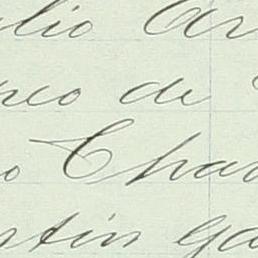 lio Ar
peo de
o Cha
rtin ga